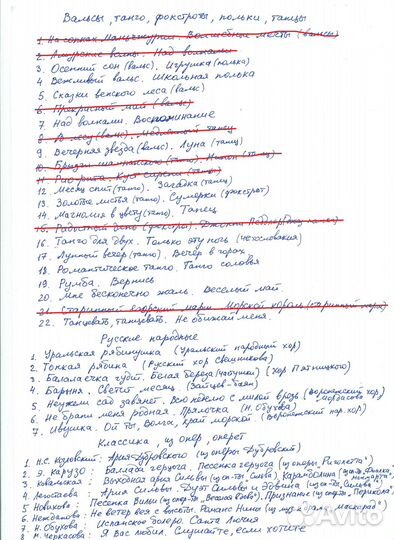 Вальсы, танго, фокстроты, польки, танцы
1. На сопках Маньчжурии. Волшебные мечты (вальсы)
2. Амурские волны. Над волнами
3. Осенний сон (вальс). Игрушка (полька)
4. Вежливый вальс. Школьная полька
5. Сказки венского леса (вальс)
6. Прекрасный май (вальс)
7. Над волнами. Воспоминание
8. В лесу (вальс). Медленный танец
9. Вечерняя звезда (вальс). Луна (танц)
10. (танго). (танц)
11. Рио-рита. (танго)
12. Месяц спит (танго). Загадка (танц)
13. Золотые листья (танго). Сумерки (фокстрот)
14. Магнолия в цвету (танго). Танец
15. Джонни
16. Танго для двух. Только эту ночь (чехословакия)
17. Лунный ветер (танго). Вечер в горах
18. Романтическое танго. Танго соловья
19. Румба. Вернись
20. Мне бесконечно жаль. Веселый май.
21. Старинный егерский марш. Морской король (старинный марш)
22. Танцевать, танцевать. Не обижай меня.
Русские народные
1. Уральская рябинушка (Уральский народный хор)
2. Тонкая рябина (Русский хор Свешникова)
3. Балалаечка гудит. Белая береза (частушки) (хор Пятницкого)
4. Барыня. Светит месяц (Зайцев-баян)
5. Неужели сад завянет. Всю неделю с милой врозь (Воронежский хор, Мордасова)
6. Не брани меня родная. Прялочка (Н. Обухова)
7. Ивушка. Ой ты, Волга, край морской (Воронежский нар. хор)
Классика, из опер, оперет
1. И.С. Козловский: Ария Дубровского (из оперы Дубровский)
2. Э. Карузо: Баллада герцога. Песенка герцога (из оперы "Риголетто")
3. Ковальская: Выходная ария Сильвы (из оп-ты "Сильва")
4. Ария Сильвы. Дуэт Сильвы и Эдвина (из оп-ты "Сильва")
5. Новикова: Песенка Вили (из оп-ты "Веселая вдова"). Признание (из оп-ты "Перикола")
6. Нежданова: Не ветер вея с высоты. Романс Нины (из муз. к драме Маскарад
7. Н. Обухова: Испанское болеро. Санта Лючия
8. М. Черкасова: Я вас любил. Слушайте, если хотите
Avito